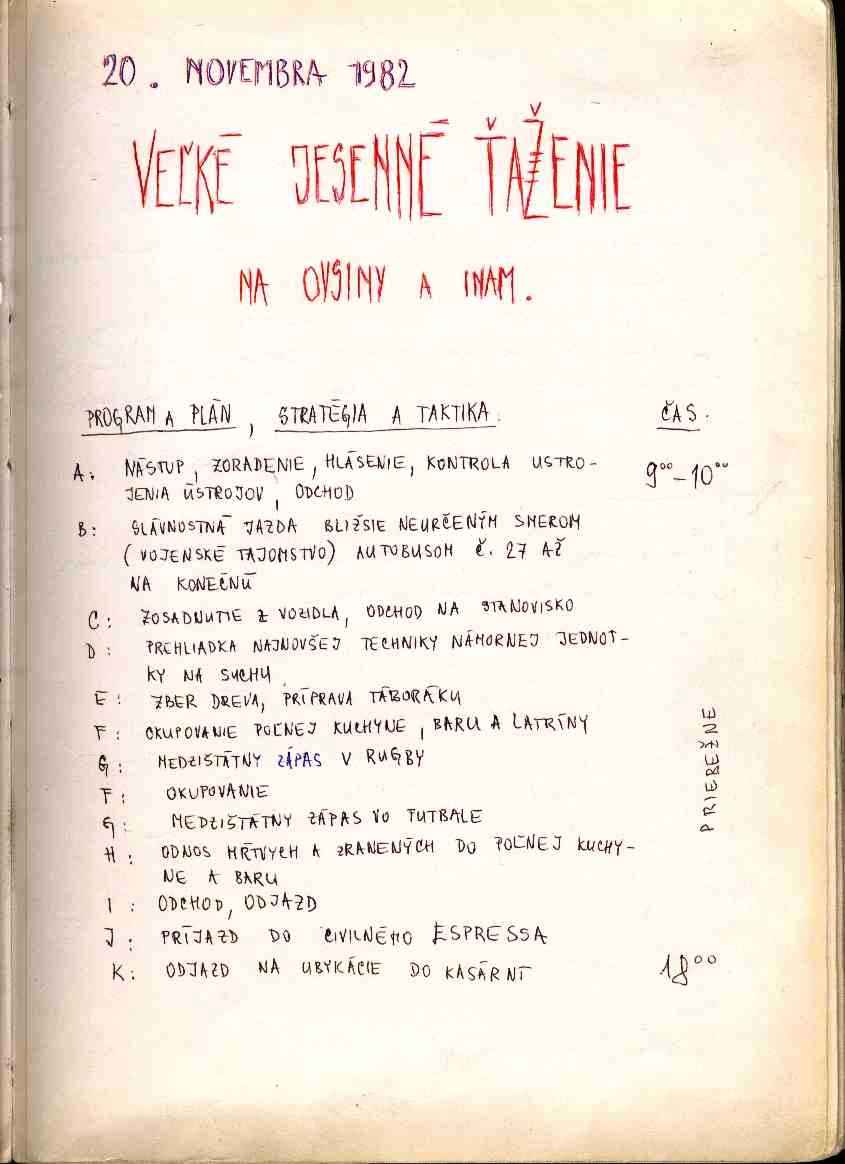 20. NOVEMBRA 1982
VEĽKÉ JESENNÉ ŤAŽENIE
NA OVSINY A INAM.
PROGRAM A PLÁN, STRATÉGIA A TAKTIKA. ČAS.
A: NÁSTUP, ZORADENIE, HLÁSENIE, KONTROLA USTRO- 9⁰⁰-10⁰⁰
JENIA ÚSTROJOV, ODCHOD
B: SLÁVNOSTNÁ JAZDA BLIŽSIE NEURČENÝM SMEROM
(VOJENSKÉ TAJOMSTVO) AUTOBUSOM Č. 27 AŽ
NA KONEČNÚ
C: ZOSADNUTIE Z VOZIDLA, ODCHOD NA STANOVISKO
D: PREHLIADKA NAJNOVŠEJ TECHNIKY NÁMORNEJ JEDNOT-
KY NA SUCHU
E: ZBER DREVA, PRÍPRAVA TÁBORÁKU
F: OKUPOVANIE POĽNEJ KUCHYNE, BARU A LATRÍNY
G: MEDZIŠTÁTNY ZÁPAS V RUGBY
F: OKUPOVANIE
G: MEDZIŠTÁTNY ZÁPAS VO FUTBALE
H: ODNOS MŔTVYCH A ZRANENÝCH DO POĽNEJ KUCHY-
NE A BARU
I: ODCHOD, ODJAZD
J: PRÍJAZD DO CIVILNÉHO ESPRESSA
K: ODJAZD NA UBYKÁCIE DO KASÁRNÍ 18⁰⁰
PRIEBEŽNE